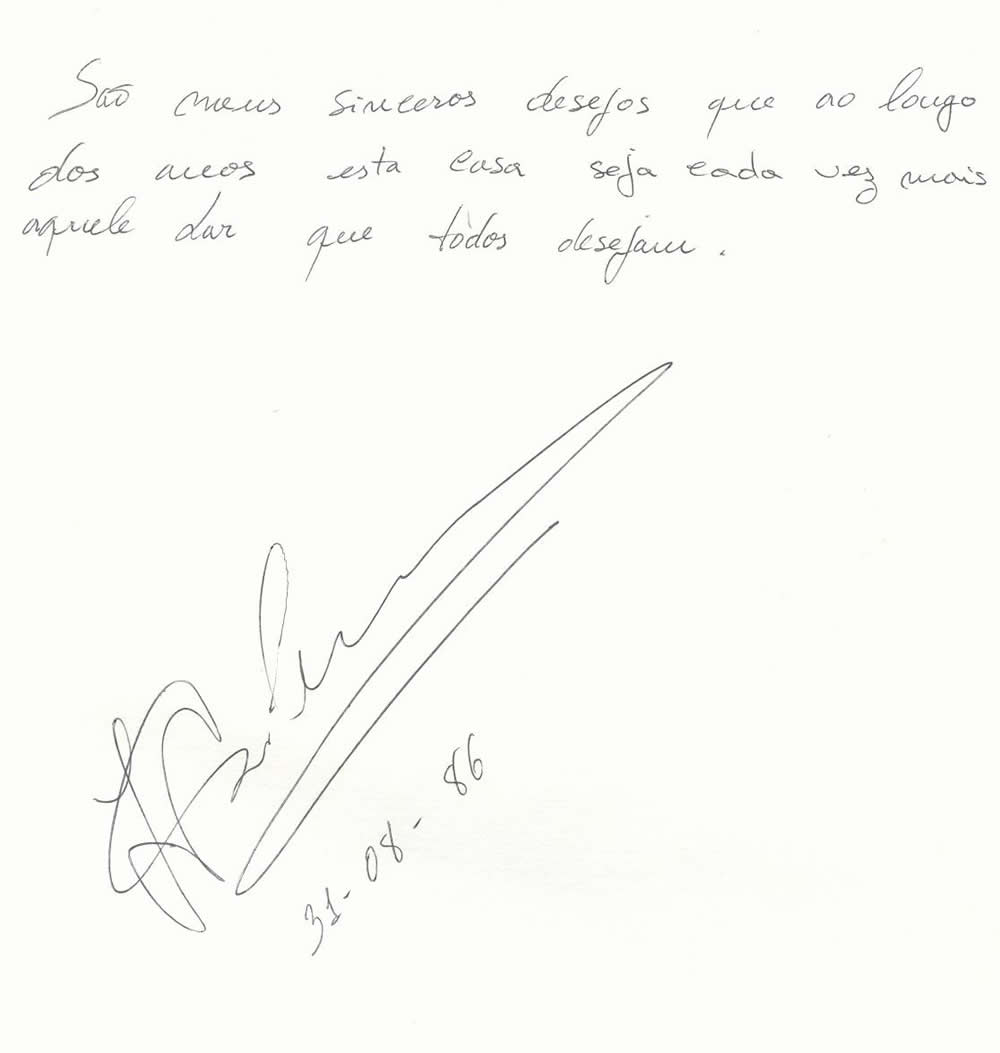 São meus sinceros desejos que ao longo
dos anos esta casa seja cada vez mais
aquele Lar que todos desejam.
31-08-86